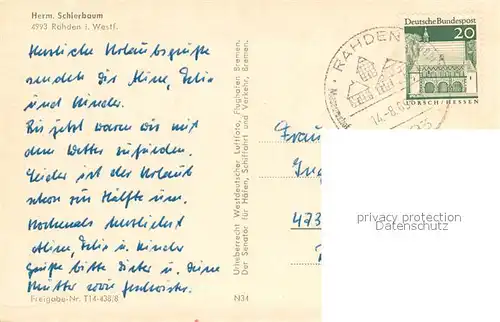 Herm. Schierbaum
4993 Rahden i. Westf.
Herzliche Urlaubsgrüße
sendet Dir Aline,
und Kinder.
Bis jetzt waren wir mit
dem Wetter zufrieden.
Leider ist der Urlaub
schon zur Hälfte um.
Nochmals herzlichst
Aline, u. Kinder
Grüße bitte Dieter u. Deine
Mutter sowie Geschwister.
Freigabe-Nr. T14-438/8
N34
Urheberrecht Westdeutscher Luftfoto, Flughafen Bremen.
Der Senator für Häfen, Schiffahrt und Verkehr, Bremen.
RAHDEN
14.-8.69
Deutsche Bundespost
20
LORSCH/HESSEN
Frau
473
privacy protection
Datenschutz